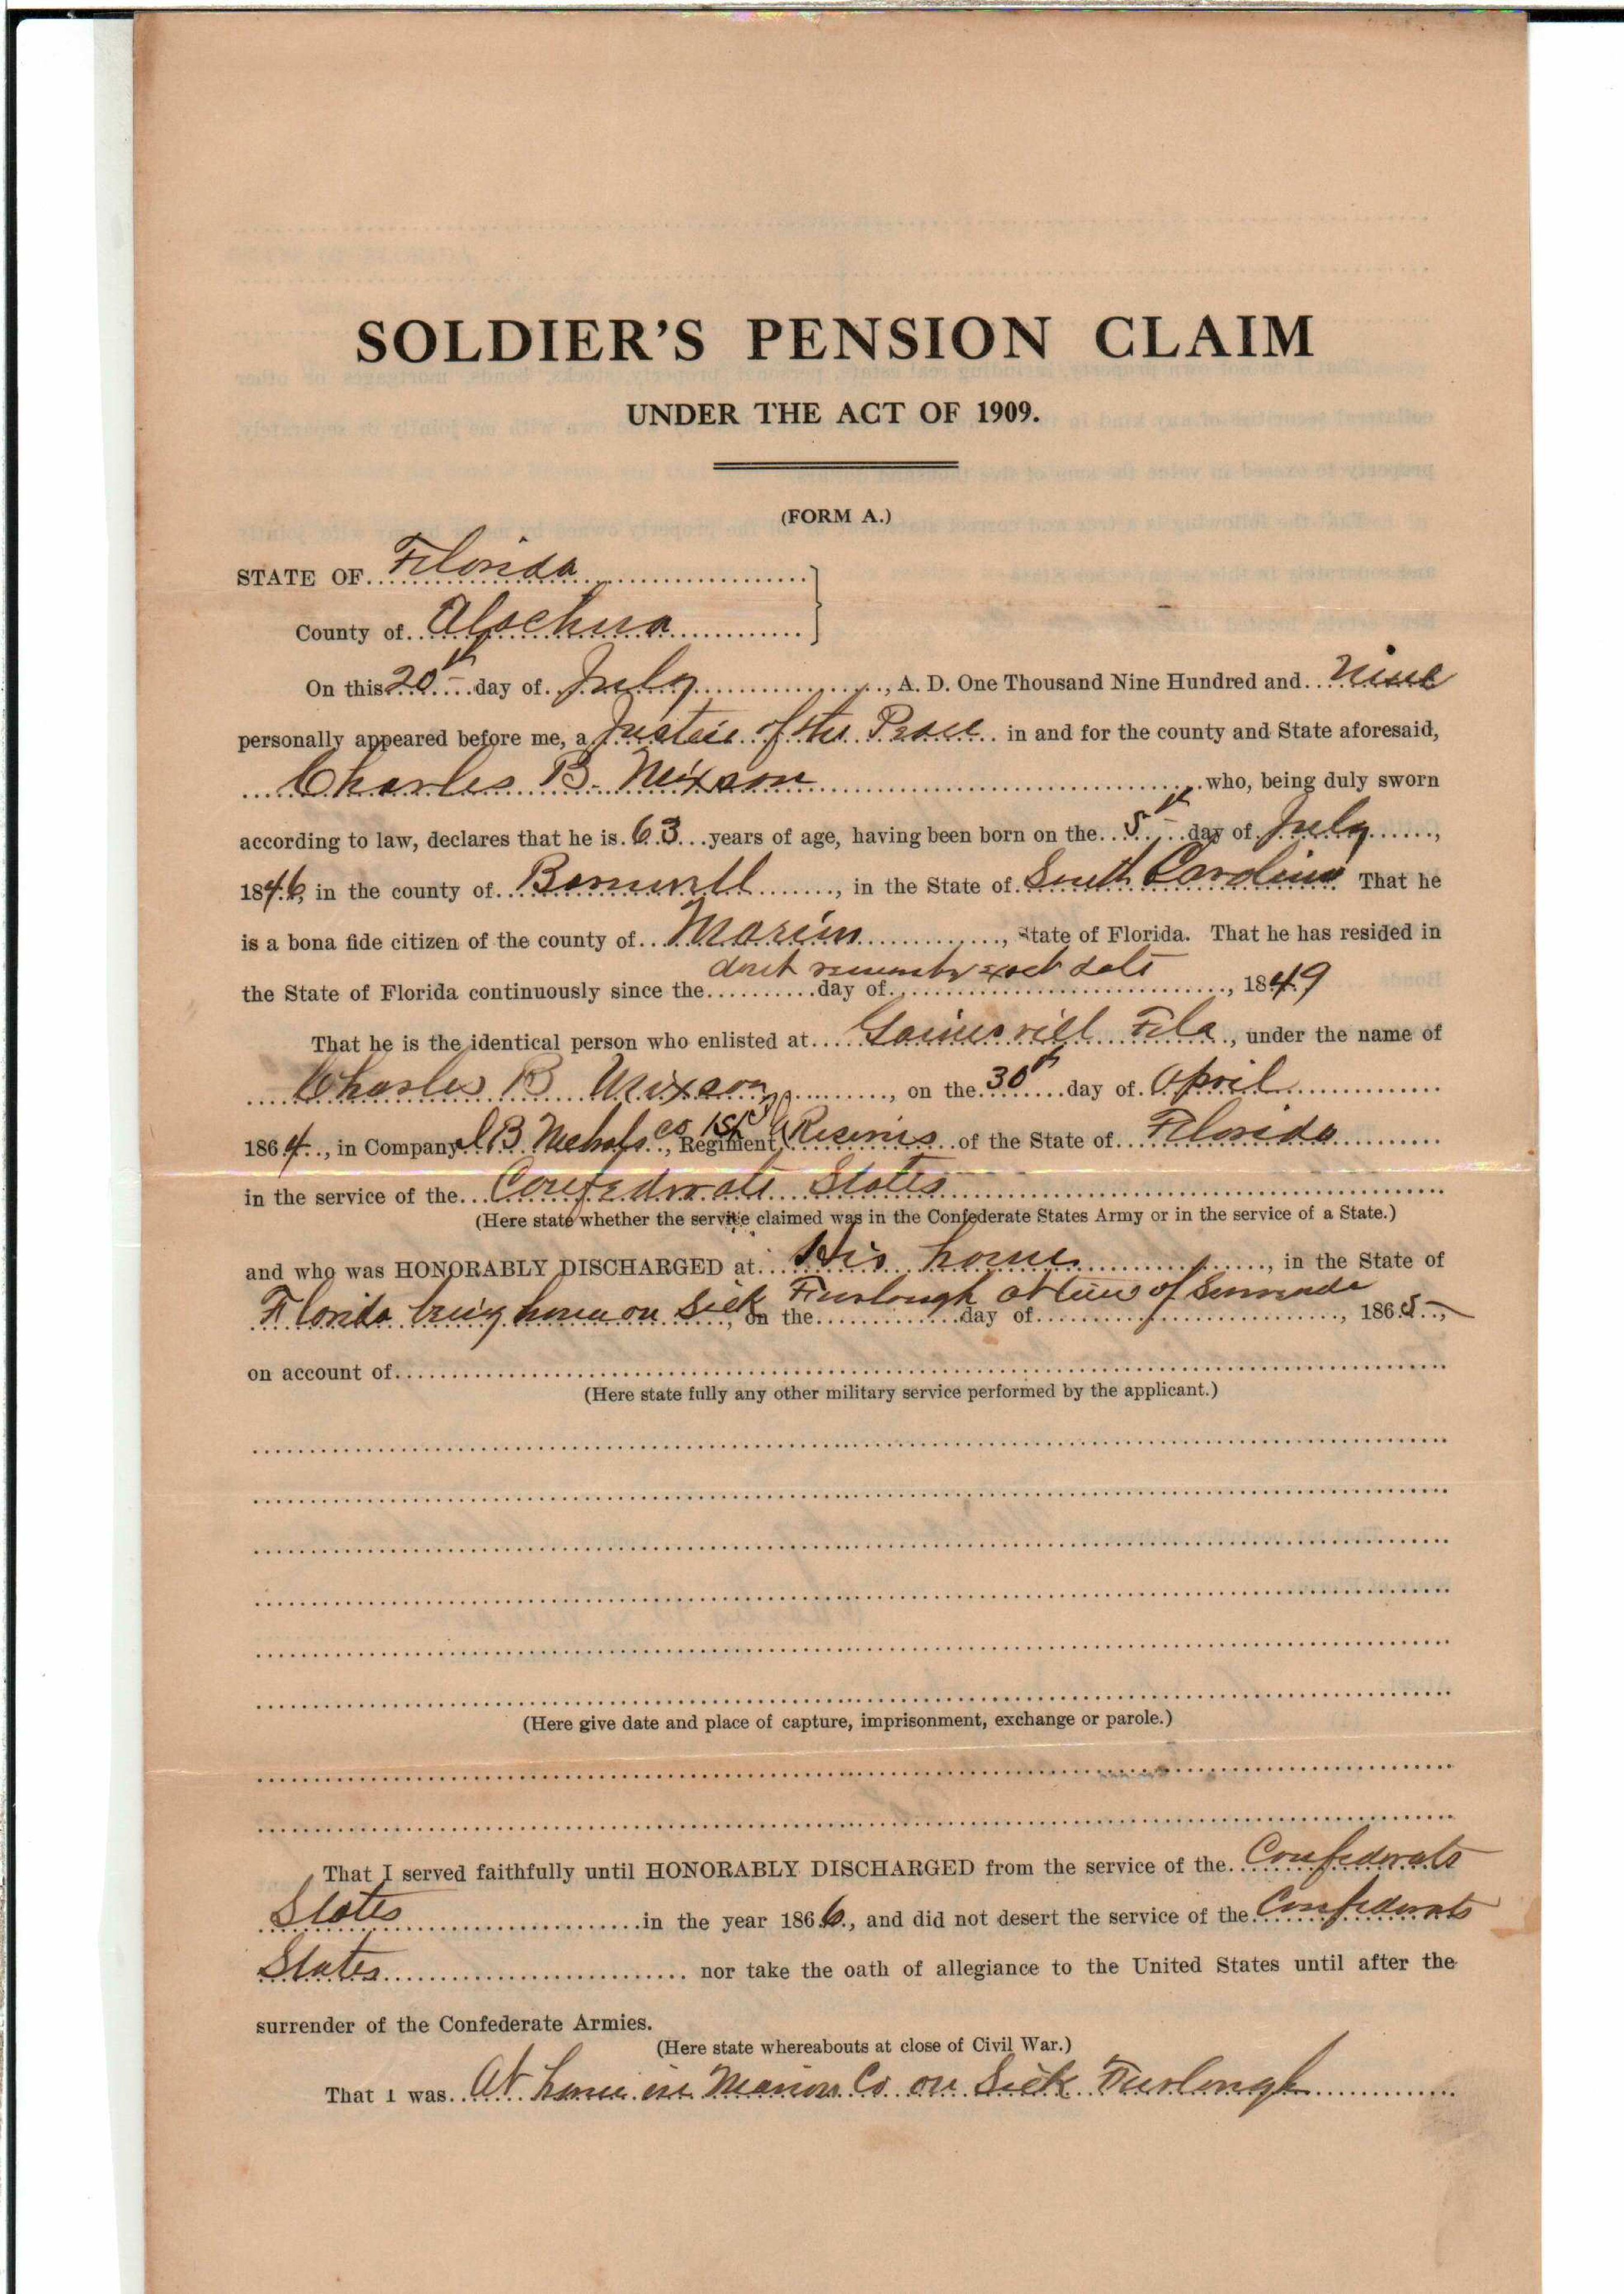 SOLDIER'S PENSION CLAIM
UNDER THE ACT OF 1909.
(FORM A.)
STATE OF Florida
County of Alachua
On this 20th day of July, A. D. One Thousand Nine Hundred and Nine
personally appeared before me, a Justice of the Peace in and for the county and State aforesaid,
Charles B. Mixson who, being duly sworn
according to law, declares that he is 63 years of age, having been born on the 5th day of July,
1846, in the county of Barnwell, in the State of South Carolina That he
is a bona fide citizen of the county of Marion, State of Florida. That he has resided in
dont remember exact date
the State of Florida continuously since the day of, 1849
That he is the identical person who enlisted at Gainesvill Fla, under the name of
Charles B Mixson, on the 30th day of April
1864, in Company Nichols Co, Regiment 1st Reserves of the State of Florida
in the service of the Confederate States
(Here state whether the service claimed was in the Confederate States Army or in the service of a State.)
and who was HONORABLY DISCHARGED at His home, in the State of
Florida being home on Sick Furlough at time of Surrender, on the day of, 1865,
on account of
(Here state fully any other military service performed by the applicant.)
(Here give date and place of capture, imprisonment, exchange or parole.)
That I served faithfully until HONORABLY DISCHARGED from the service of the Confederate
States in the year 1866, and did not desert the service of the Confederate
States nor take the oath of allegiance to the United States until after the
surrender of the Confederate Armies.
(Here state whereabouts at close of Civil War.)
That I was At home in Marion Co on Sick Furlough